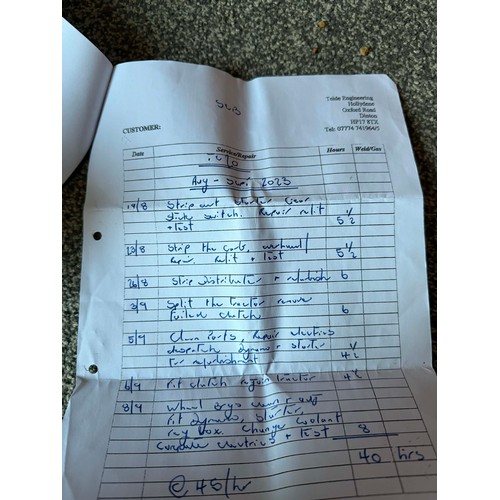 Teide Engineering
Hollydene
Oxford Road
Dinton
HP17 8TX
Tel: 07774 741964/5
CUSTOMER:
Date Service/Repair Hours Weld/Gas
Aug - 2023
14/8 Strip out starter Gear
switch. Repair refit 5 1/2
+ test
23/8 Strip the carb, overhaul/
refit + test 5 1/2
26/8 Strip Distributor + refurbish 6
3/9 Split the tractor remove
failed clutch 6
5/9 Clean Parts, Repair electrics
dispatch dynamo + starter
for refurbishment 4 1/2
6/9 Fit clutch rejoin tractor 4 1/2
8/9 Wheel clean + adj
fit dynamo, starter,
box. Change Coolant
Complete electrics + test 8
40 hrs
@ 45/hr